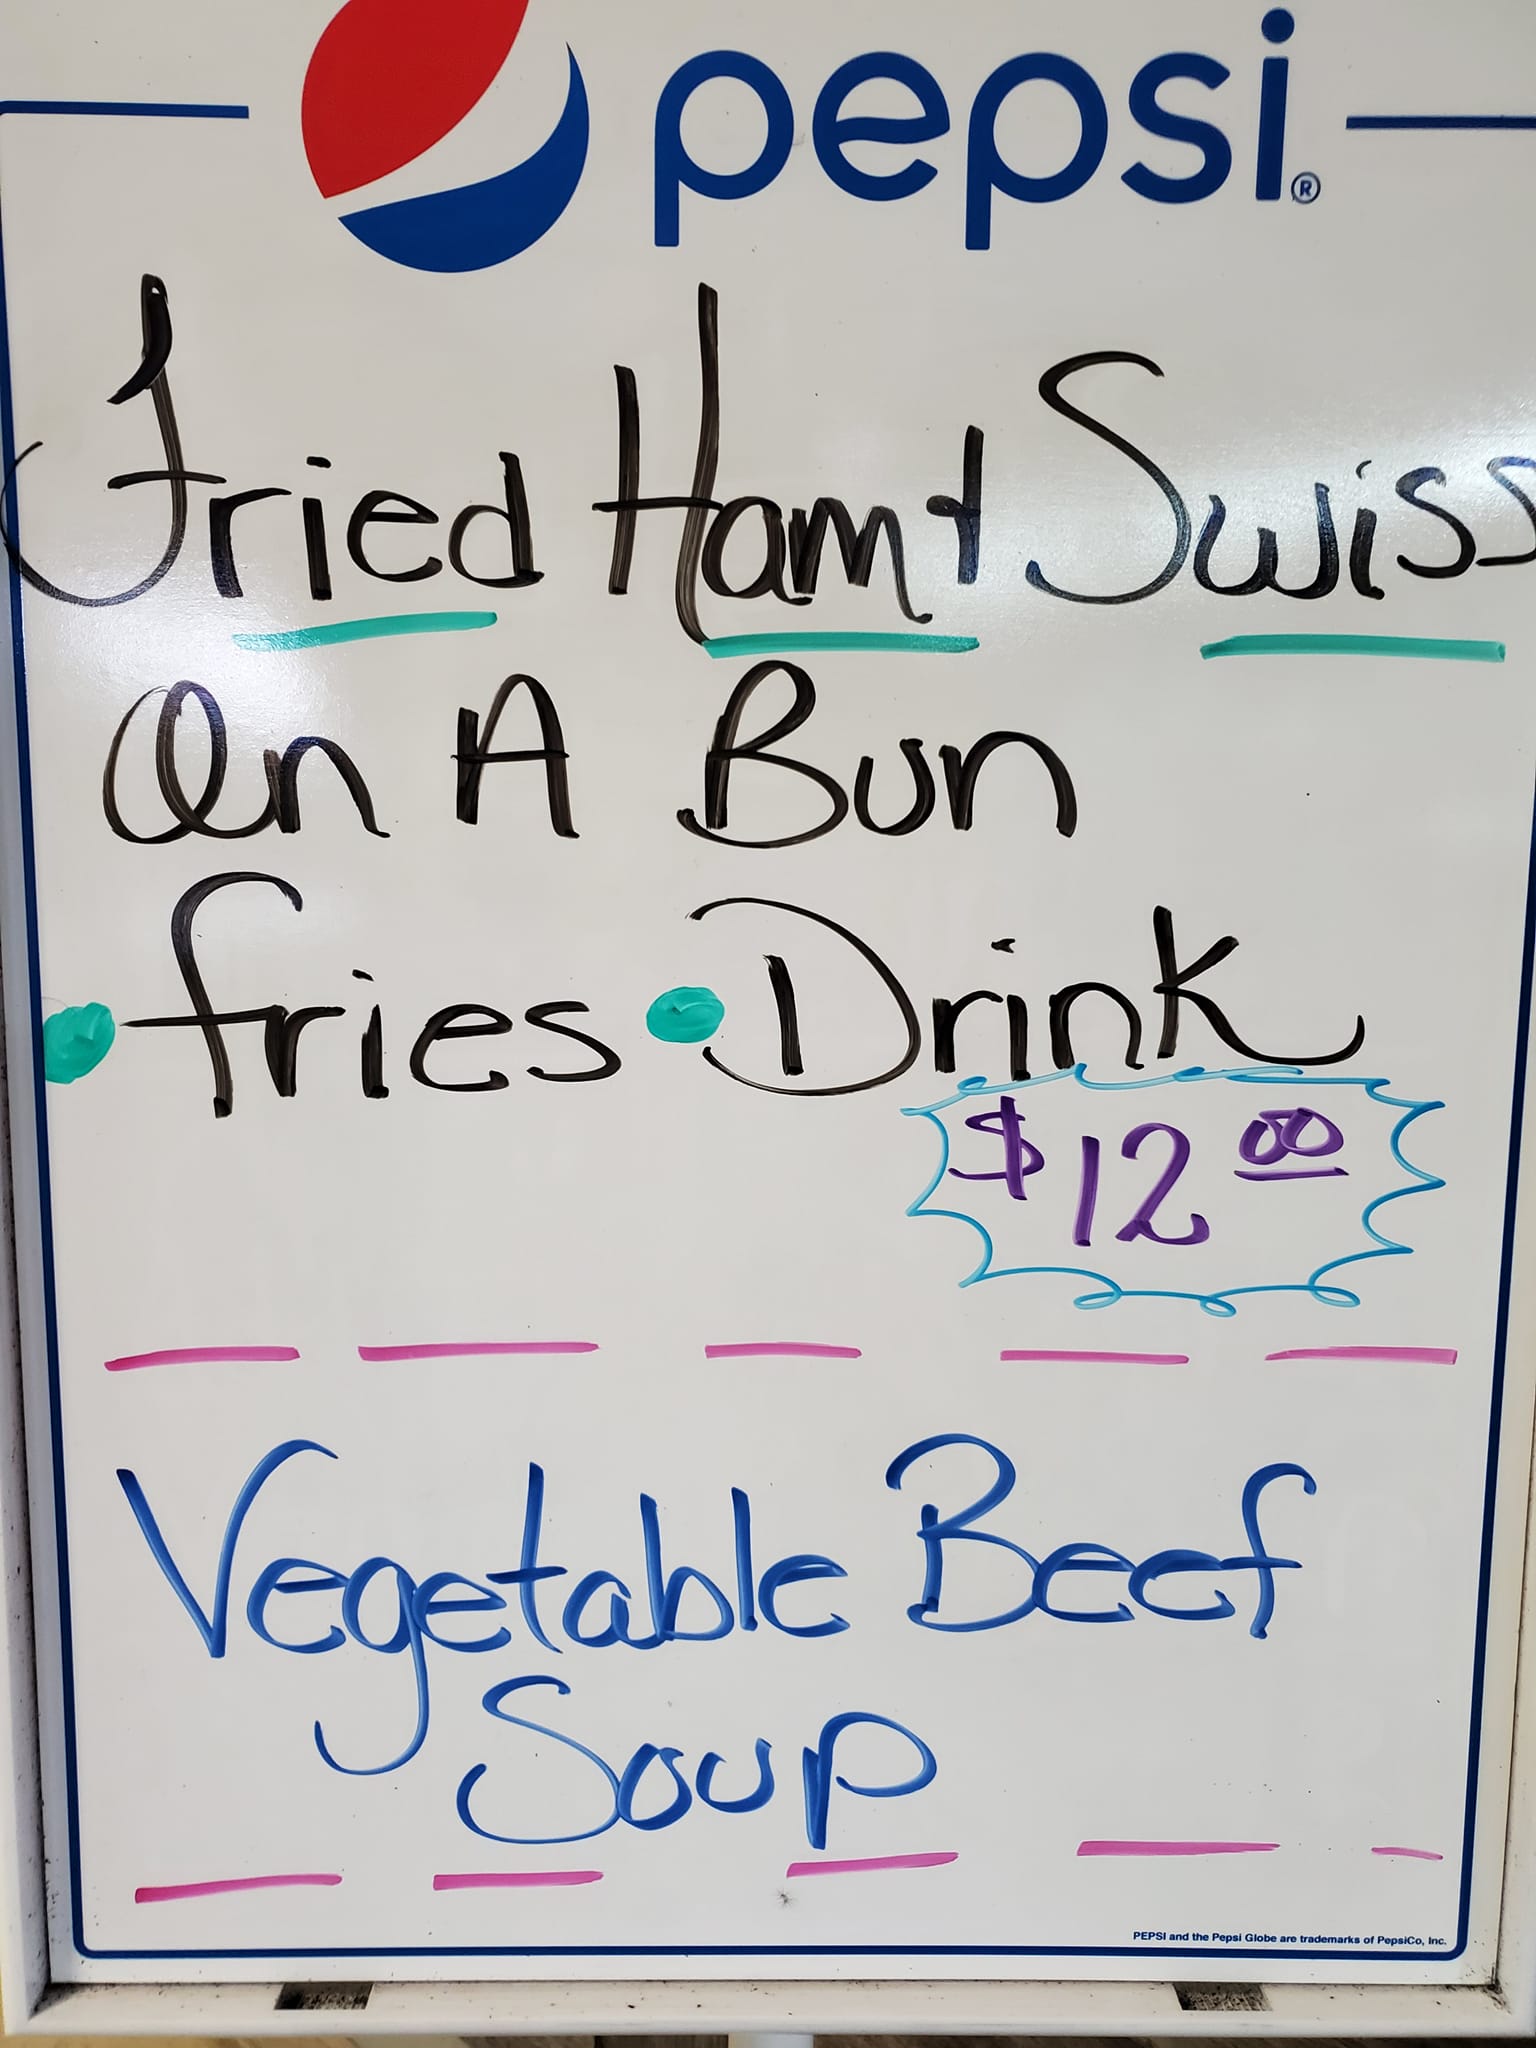 pepsi®
Fried Ham + Swiss
On A Bun
• fries • Drink
$12.00
Vegetable Beef
Soup
PEPSI and the Pepsi Globe are trademarks of PepsiCo, Inc.